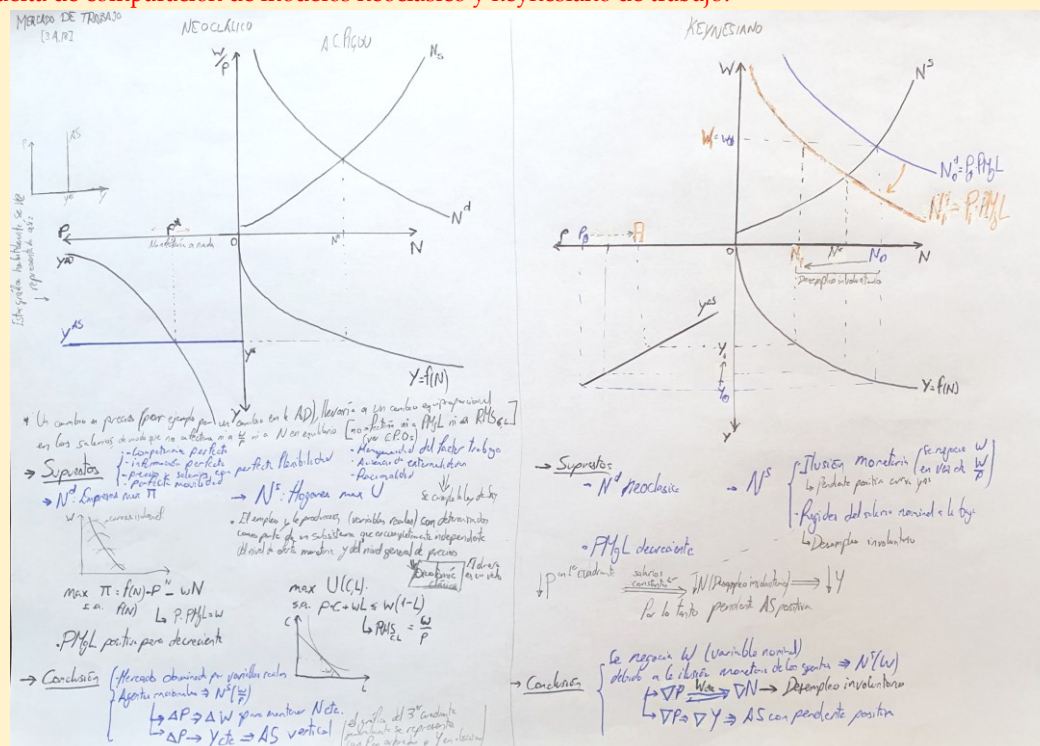 MERCADO DE TRABAJO
[3.4.18]
NEOCLÁSICO
A.C. PIGOU
W/P
Ns
AS
P
Y
P
P*
No afecta a nada
0
N*
N
Nd
YAD
YAS
Y*
Y=f(N)
Y
* Un cambio en precios (por ejemplo por un cambio en la AD), llevaría a un cambio equiproporcional
en los salarios de modo que no afectaría ni a W/P ni a N en equilibrio [no afectaría ni a PMgL ni a RMS CL]
(ver C.P.O.s)
→ Supuestos
- Competencia perfecta
- información perfecta
- precios y salarios con perfecta flexibilidad
- perfecta movilidad
- Homogeneidad del factor trabajo
- Ausencia de externalidades
- Racionalidad
→ Nd: Empresas max Π
→ Ns: Hogares max U
Se cumple la ley de Say
• El empleo y la producción (variables reales) son determinados
como parte de un subsistema que es completamente independiente
del nivel de oferta monetaria y del nivel general de precios
Dicotomía clásica
El dinero es un velo
W
N
max Π = f(N)·P - wN
s.a. f(N)
↳ P·PMgL=w
• PMgL positiva pero decreciente
max U(C,L)
s.a. P·C + wL ≤ W(1-L)
↳ RMS CL = W/P
C
L
→ Conclusión
- Mercado dominado por variables reales
- Agentes racionales ⇒ Ns(W/P)
↳ ΔP ⇒ ΔW para mantener N cte.
↳ ΔP ⇒ Y cte ⇒ AS vertical
KEYNESIANO
W
NS
W̄=W0
N0d=P0·PMgL
N1d=P1·PMgL
P
P0
P1
0
N1
N*
N0
N
Desempleo involuntario
YAS
Y1
Y0
Y=f(N)
Y
→ Supuestos
→ Nd neoclásica
→ NS
- Ilusión monetaria (se negocia W en vez de W/P)
↳ Pendiente positiva curva YAS
- Rigidez del salario nominal a la baja
↳ Desempleo involuntario
• PMgL decreciente
↓P en 1er cuadrante
salarios constantes
↓N (Desempleo involuntario) ⇒ ↓Y
Por lo tanto pendiente AS positiva
→ Conclusión
Se negocia W (variable nominal)
debido a la ilusión monetaria de los agentes ⇒ NS(W)
↳ ∇P W cte ⇒ ∇N → Desempleo involuntario
↳ ∇P ⇒ ∇Y ⇒ AS con pendiente positiva